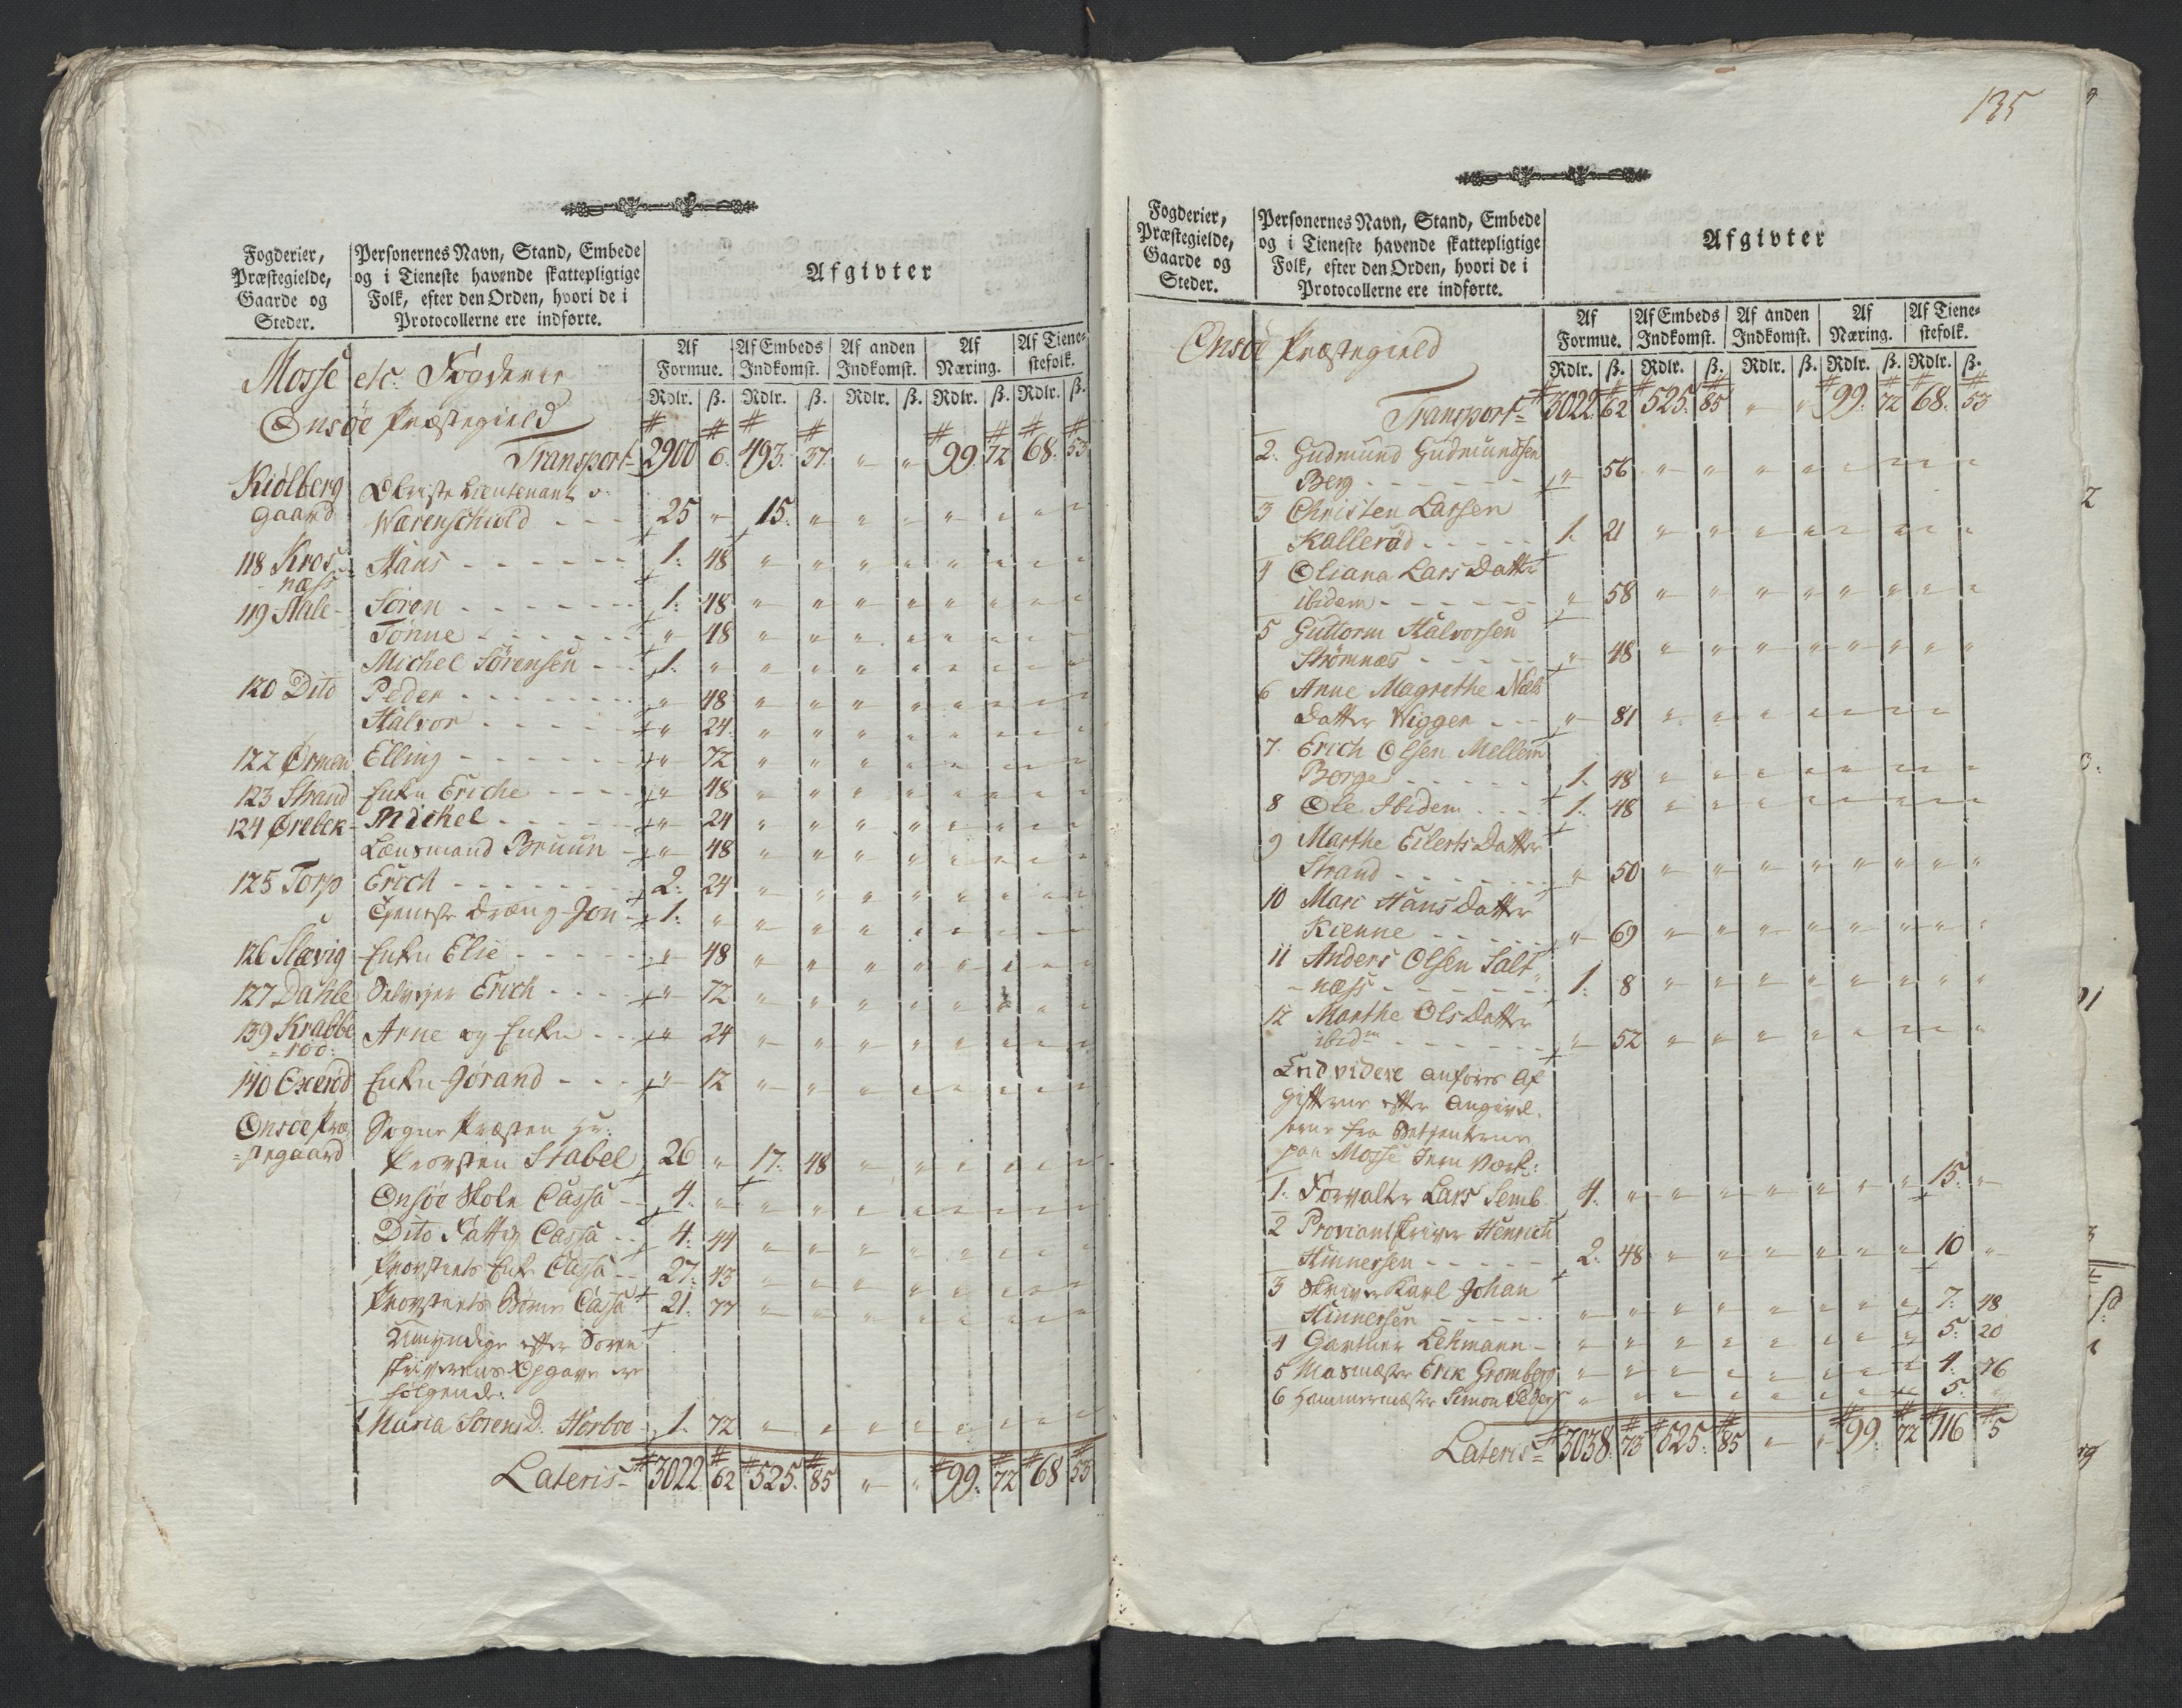 Fogderier,
Præstegielde,
Gaarde og
Steder.
Personernes Navn, Stand, Embede
og i Tieneste havende skattepligtige
Folk, efter den Orden, hvori de i
Protocollerne ere indførte.
Afgivter
Af Formue. Af Embeds Indkomst. Af anden Indkomst. Af Næring. Af Tienestefolk.
Rdlr. ß. Rdlr. ß. Rdlr. ß. Rdlr. ß. Rdlr. ß.
Mosse etc: Fogderie
Onsøe Præstegield
Transport 2900 6. 493. 37 " " 99. 72 68. 53
Kiølberg Obriste Lieutenant v:
gaard Warenschiold - - - 25 " 15. " " " " " " "
118 Kros- Hans - - - - - - 1. 48 " " " " " " " "
næss
119 Hale - Sören - - - - - - 1. 48 " " " " " " " "
Tønne - - - - - - " 48 " " " " " " " "
Michel Sørensen - - 1. " " " " " " " " "
120 Dito Peder - - - - - - " 48 " " " " " " " "
Halvor - - - - - " 24. " " " " " " " "
122 Ørmen Elling - - - - - - " 72 " " " " " " " "
123 Strand Enke Eriche - - - - " 48 " " " " " " " "
124 Ørebek - Michel - - - - - " 24 " " " " " " " "
Lænsmand Bruun - " 48 " " " " " " " "
125 Torp Erich - - - - - - 2. 24 " " " " " " " "
Tieneste Dreng Jon - 1. " " " " " " " " "
126 Slævig Enke Elie - - - - - " 48 " " " " " " " "
127 Dahle Selveyer Erich - - - - " 72 " " " " " " " "
139 Krabbe Arne og Enke - - " 24 " " " " " " " "
= rød:
140 Exerød Enke Jørand - - - " 12 " " " " " " " "
Onsøe Præ Sogne Præsten Hr:
= stegaard Provsten Stabel 26 " 17. 48 " " " " " "
Onsøe Skole Cassa - - 4. " " " " " " " " "
Dito Fattig Cassa - - 4. 44 " " " " " " " "
Provstiets Enke Cassa - - 27. 43 " " " " " " " "
Provstiets Børne Cassa 21. 77 " " " " " " " "
Umyndige efter Soren
skriverens Opgave ere
følgende:
1 Maria Sorens D. Horboe - 1. 72 " " " " " " " "
Lateris - 3022 62 525. 85 " " 99. 72 68 53
135
Fogderier,
Præstegielde,
Gaarde og
Steder.
Personernes Navn, Stand, Embede
og i Tieneste havende skattepligtige
Folk, efter den Orden, hvori de i
Protocollerne ere indførte.
Afgivter
Af Formue. Af Embeds Indkomst. Af anden Indkomst. Af Næring. Af Tienestefolk.
Rdlr. ß. Rdlr. ß. Rdlr. ß. Rdlr. ß. Rdlr. ß.
Onsøe Præstegield
Transport - 3022. 62 525. 85 " " 99. 72 68. 53
2. Gudmund Gudmundsen
Berg - - - - - - " 56 " " " " " " " "
3 Christen Larsen
Kallerød - - - - - 1. 21 " " " " " " " "
4 Oliana Lars Datter
ibidem - - - - - - " 58 " " " " " " " "
5 Guttorm Halvorsen
Strømnæs - - - - - " 48 " " " " " " " "
6 Anne Magrethe Niels
Datter Wiggen - - - " 81 " " " " " " " "
7. Erich Olsen Mellem
Borge - - - - - 1. 48 " " " " " " " "
8 Ole Ibidem - - - 1. 48 " " " " " " " "
9 Marthe Eilerts Datter
Strand - - - - - - - " 50 " " " " " " " "
10 Mari Hans Datter
Kienne - - - - - - " 69 " " " " " " " "
11 Anders Olsen Salt
- næss - - - - - - 1. 8 " " " " " " " "
12 Marthe Ols Datter
ibidm - - - - - - - " 52 " " " " " " " "
Endvidere anføres Af
gifterne efter Angivel.
serne fra Betjenterne
paa Mosse Jernværk:
1. Forvalter Lars Semb. 4. " " " " " " " 15. "
2 Proviantskriver Henrich
Hinnersen - - - - - 2. 48 " " " " " " 10 "
3 Skriver Karl Johan
Hinnersen - - - - - " " " " " " " " 7. 48
4 Gartner Lehmann - " " " " " " " " 5. 20
5 Masmæster Erik Gromberg " " " " " " " " 4. 76
6 Hammermæster Simon " " " " " " " " 5. "
Lateris - 3038. 73 525. 85 " " 99. 72 116 5